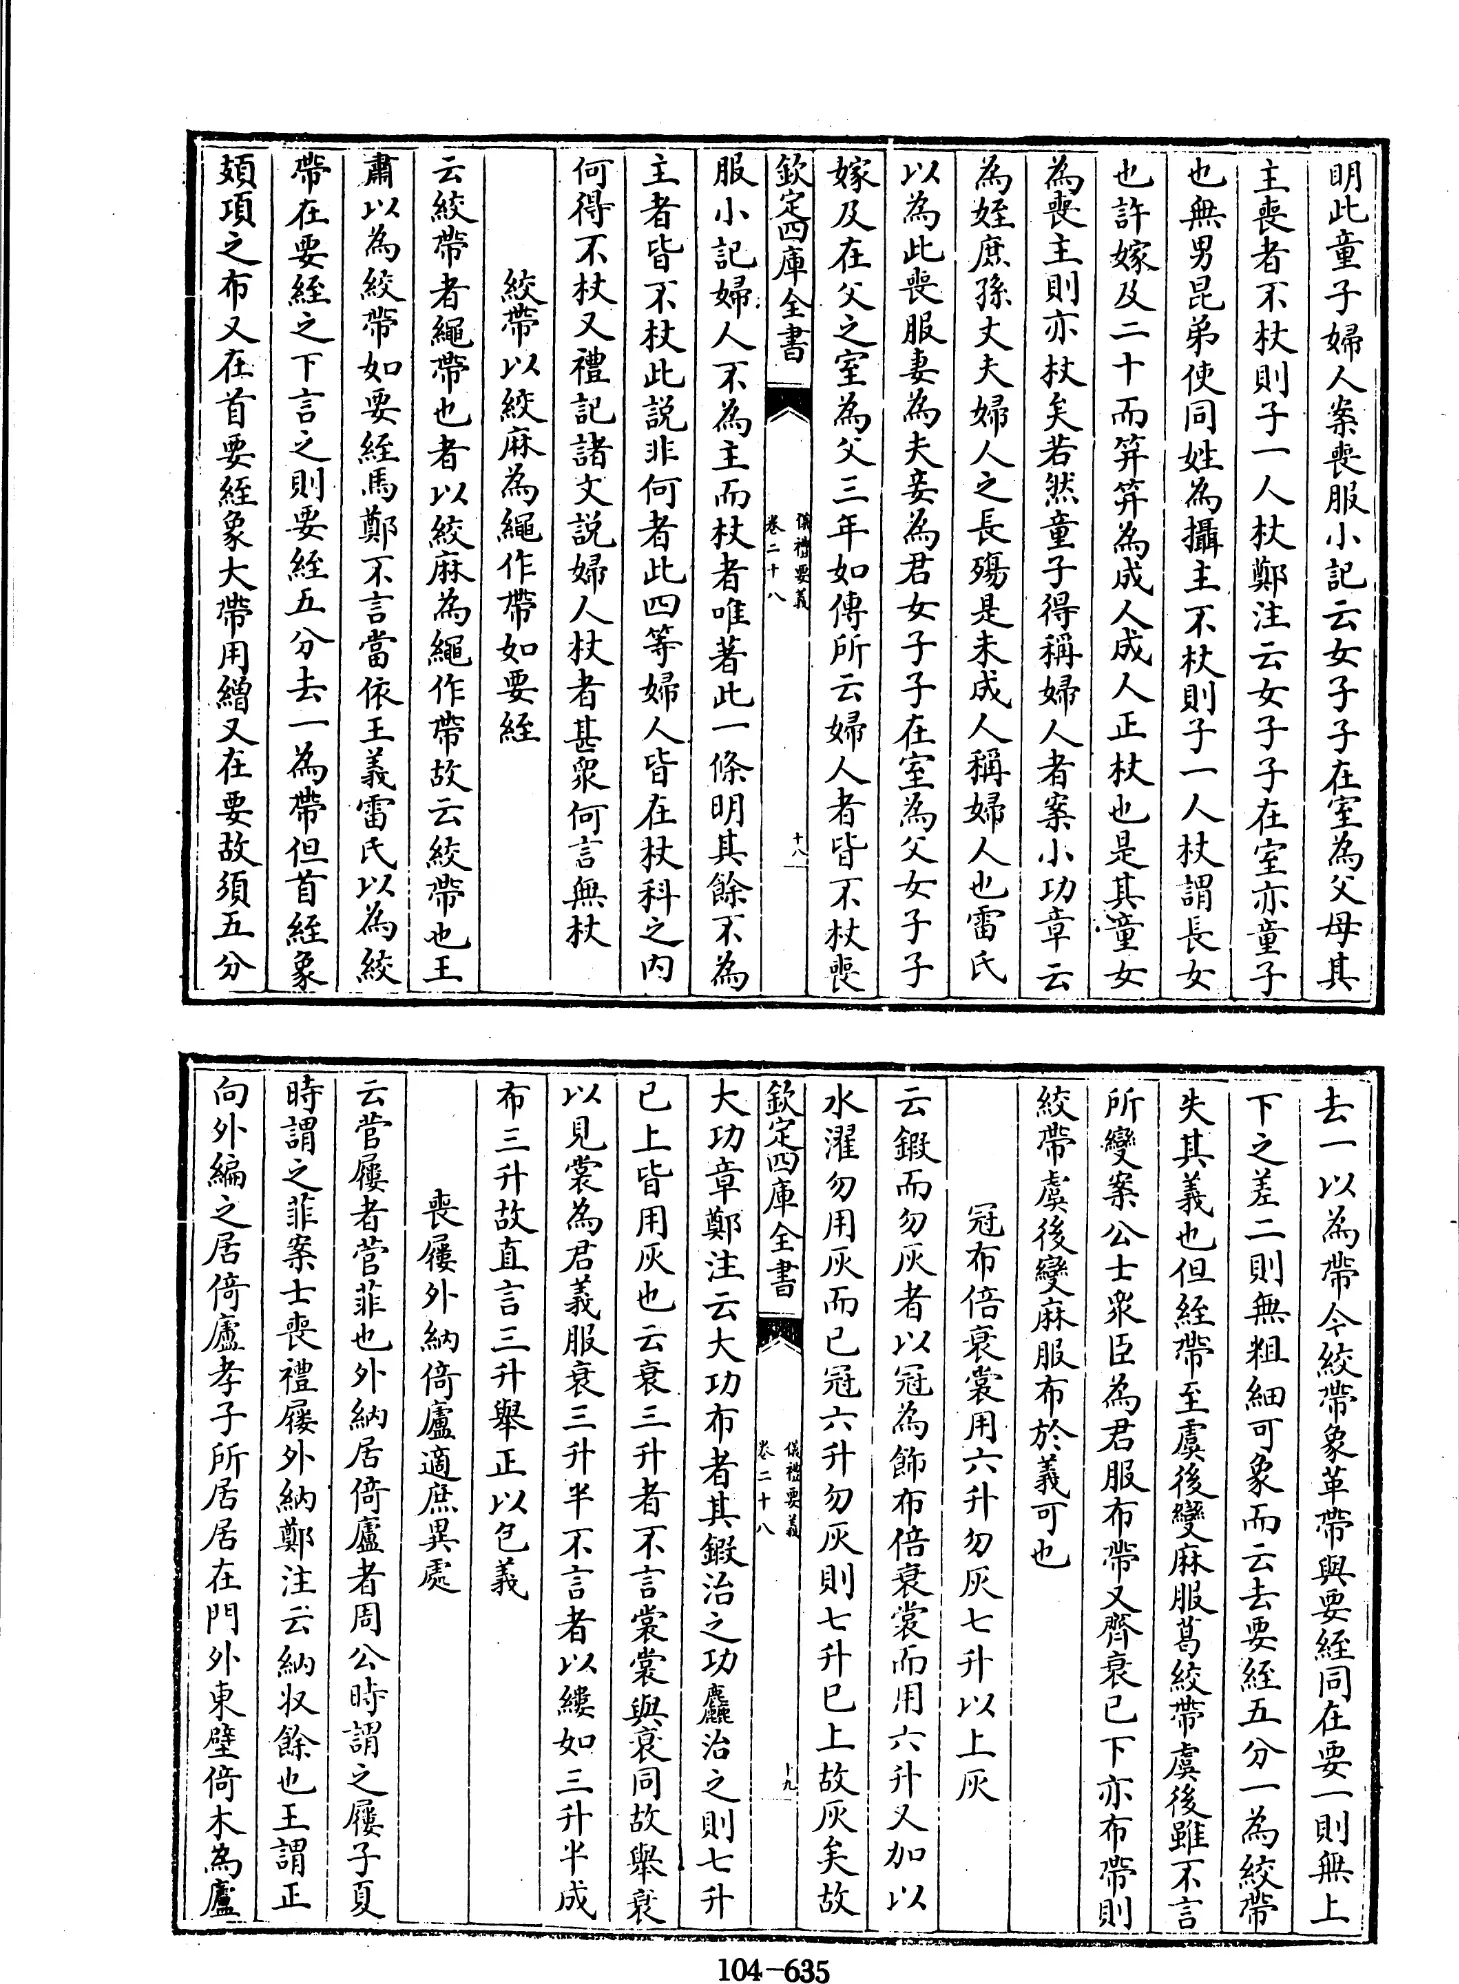 明此童子婦人案喪服小記云女子子在室為父母其
主喪者不杖則子一人杖鄭注云女子子在室亦童子
也無男昆弟使同姓為攝主不杖則子一人杖謂長女
也許嫁及二十而笄笄為成人成人正杖也是其童女
為喪主則亦杖矣若然童子得稱婦人者案小功章云
為姪庶孫丈夫婦人之長殤是未成人稱婦人也雷氏
以為此喪服妻為夫妾為君女子子在室為父女子子
嫁及在父之室為父三年如傳所云婦人者皆不杖喪
欽定四庫全書
儀禮要義
卷二十八
十八
服小記婦人不為主而杖者唯著此一條明其餘不為
主者皆不杖此説非何者此四等婦人皆在杖科之内
何得不杖又禮記諸文説婦人杖者甚衆何言無杖
絞帶以絞麻為繩作帶如要絰
云絞帶者繩帶也者以絞麻為繩作帶故云絞帶也王
肅以為絞帶如要絰馬鄭不言當依王義雷氏以為絞
帶在要絰之下言之則要絰五分去一為帶但首絰象
頍項之布又在首要絰象大帶用繒又在要故須五分
去一以為帶今絞帶象革帶與要絰同在要一則無上
下之差二則無粗細可象而云去要絰五分一為絞帶
失其義也但絰帶至虞後變麻服葛絞帶虞後雖不言
所變案公士衆臣為君服布帶又齊衰已下亦布帶則
絞帶虞後變麻服布於義可也
冠布倍衰裳用六升勿灰七升以上灰
云鍛而勿灰者以冠為飾布倍衰裳而用六升又加以
水濯勿用灰而已冠六升勿灰則七升已上故灰矣故
欽定四庫全書
儀禮要義
卷二十八
十九
大功章鄭注云大功布者其鍛治之功麤治之則七升
已上皆用灰也云衰三升者不言裳裳與衰同故舉衰
以見裳為君義服衰三升半不言者以縷如三升半成
布三升故直言三升舉正以包義
喪屨外納倚廬適庶異處
云菅屨者菅菲也外納居倚廬者周公時謂之屨子夏
時謂之菲案士喪禮屨外納鄭注云納收餘也王謂正
向外編之居倚廬孝子所居居在門外東壁倚木為廬
104-635